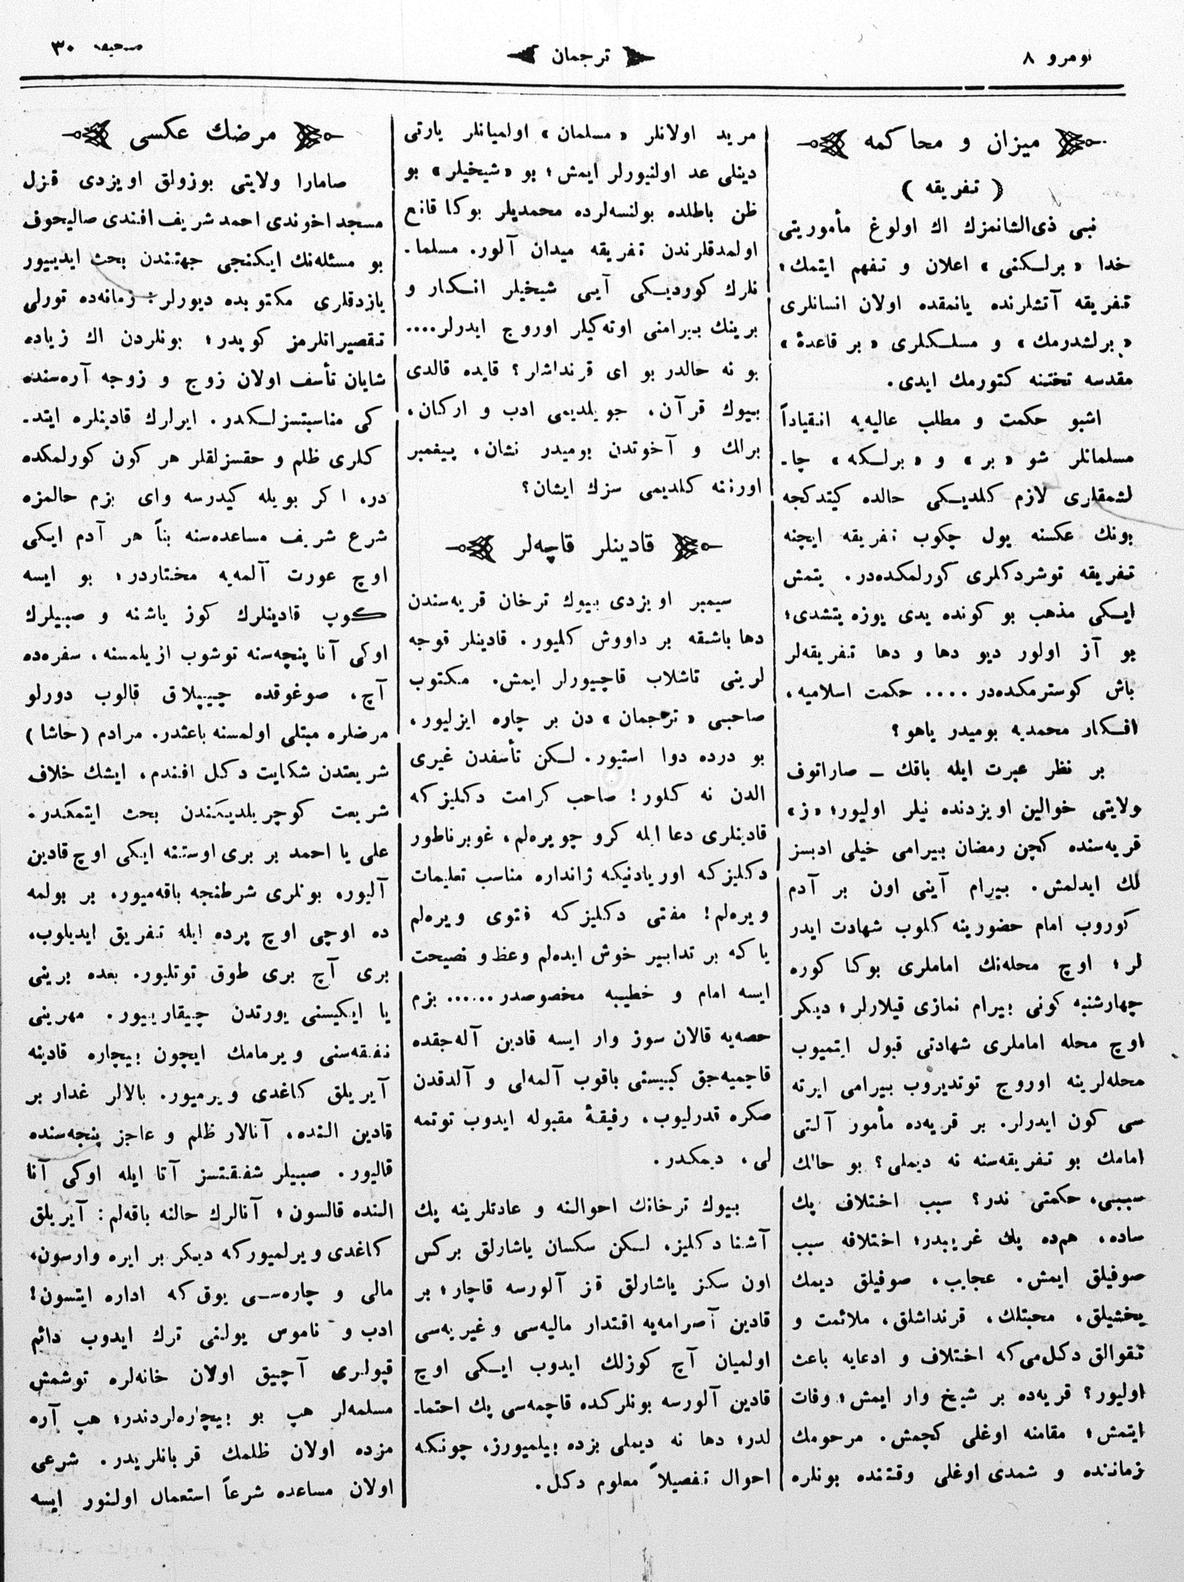 نومرو ٨
ترجمان
صحيفه ٣٠
ميزان و محاكمه
( تفريقه )
نبى ذى‌الشانمزك اك اولوغ مأموريتى
خدا «برلكنى» اعلان و تفهم ايتمك؛
تفريقه آتشلرنده يانمقده اولان انسانلرى
«برلشدرمك» و مسلكلرى «بر قاعدۀ»
مقدسه تختنه كتورمك ايدى.
اشبو حكمت و مطلب عاليه‌يه انقياداً
مسلمانلر شو «بر» و «برلكه» چا-
لشمقلرى لازم كلديكى حالده كيتدكجه
بونك عكسنه يول چكوب تفريقه ايچنه
تفريقه توشردكلرى كورلمكده‌در. يتمش
ايكى مذهب بو كونده يدى يوزه يتشدى؛
بو آز اولور ديو دها و دها تفريقه‌لر
باش كوسترمكده‌در .... حكمت اسلاميه،
افكار محمديه بوميدر ياهو؟
بر نظر عبرت ايله باقك – صاراتوف
ولايتى خوالين اويزدنده نيلر اوليور؛ «ز»
قريه‌سنده كچن رمضان بيرامى خيلى ادبسز
لك ايدلمش. بيرام آينى اون بر آدم
كوروب امام حضورينه كلوب شهادت ايدر
لر؛ اوچ محله‌نك اماملرى بوكا كوره
چهارشنبه كونى بيرام نمازى قيلارلر؛ ديكر
اوچ محله اماملرى شهادتى قبول ايتميوب
محله‌لرينه اوروج توتديروب بيرامى ايرته
سى كون ايدرلر. بر قريه‌ده مأمور آلتى
امامك بو تفريقه‌سنه نه ديملى؟ بو حالك
سببى، حكمتى ندر؟ سبب اختلاف پك
ساده، هم‌ده پك غريبدر؛ اختلافه سبب
صوفيلق ايمش. عجايب، صوفيلق ديمك
يخشيلق، محبتلك، قرنداشلق، ملائمت و
تقوالق دكل‌مى‌كه اختلاف و ادعايه باعث
اوليور؟ قريه‌ده بر شيخ وار ايمش؛ وفات
ايتمش؛ مقامنه اوغلى كچمش. مرحومك
زماننده و شمدى اوغلى وقتنده بونلره
مريد اولانلر «مسلمان» اولميانلر يارتى
دينلى عد اولنيورلر ايمش؛ بو «شيخيلر» بو
ظن باطلده بولنسه‌لرده محمديلر بوكا قانع
اولمدقلرندن تفريقه ميدان آلور. مسلما-
نلرك كورديكى آيى شيخيلر انكار و
برينك بيرامنى اوته‌كيلر اوروج ايدرلر....
بو نه حالدر بو اى قرنداشلر؟ قايده قالدى
بيوك قرآن، جويلديمى ادب و اركان،
برلك و آخوتدن بوميدر نشان، پيغمبر
اورننه كلديمى سزك ايشان؟
قادينلر قاچه‌لر
سيمبر اويزدى بيوك ترخان قريه‌سندن
دها باشقه بر داووش كليور. قادينلر قوجه
لرينى تاشلاب قاچيورلر ايمش. مكتوب
صاحبى «ترجمان» دن بر چاره ايزليور،
بو درده دوا استيور. لكن تأسفدن غيرى
الدن نه كلور! صاحب كرامت دكليزكه
قادينلرى دعا ايله كرو چويره‌لم، غوبرناطور
دكليزكه اوريادنيكه ژانداره مناسب تعليمات
ويره‌لم! مفتى دكليزكه فتوى ويره‌لم
ياكه بر تدابير خوش ايده‌لم وعظ و نصيحت
ايسه امام و خطيبه مخصوصدر...... بزم
حصه‌يه قالان سوز وار ايسه قادين آله‌جقده
قاچميه‌جق كبيسنى باقوب آلمه‌لى و آلدقدن
صكره قدرليوب، رفيقۀ مقبوله ايدوب توتمه
لى، ديمكدر.
بيوك ترخانك احوالنه و عادتلرينه پك
آشنا دكليز، لكن سكسان ياشارلق بركس
اون سكز ياشارلق قز آلورسه قاچار؛ بر
قادين آصرامه‌يه اقتدار ماليه‌سى و غيريه‌سى
اولميان آچ كوزلك ايدوب ايكى اوچ
قادين آلورسه بونلركده قاچمه‌سى پك احتما-
لدر؛ دها نه ديملى بزده بيلميورز، چونكه
احوال تفصيلاً معلوم دكل.
مرضك عكسى
صامارا ولايتى بوزولق اويزدى قزل
مسجد اخوندى احمد شريف افندى صاليحوف
بو مسئله‌نك ايكنجى جهتندن بحث ايدييور
يازدقلرى مكتوبده ديورلر: زمانه‌ده تورلى
تقصيراتلرمز كوپدر؛ بونلردن اك زياده
شايان تأسف اولان زوج و زوجه آره‌سنده
كى مناسبتسزلكدر. ايرلرك قادينلره ايتد-
كلرى ظلم و حقسزلقلر هر كون كورلمكده
در، اكر بويله كيدرسه واى بزم حالمزه
شرع شريف مساعده‌سنه بناً هر آدم ايكى
اوچ عورت آلمه‌يه مختاردر؛ بو ايسه
كوپ قادينلرك كوز ياشنه و صبيلرك
اوكى آنا پنچه‌سنه توشوب ازيلمسنه، سفره‌ده
آچ، صوغوقده چيپلاق قالوب دورلو
مرضلره مبتلى اولمسنه باعثدر. مرادم (حاشا)
شريعتدن شكايت دكل افندم، ايشك خلاف
شريعت كوچريلديكندن بحث ايتمكدر.
على يا احمد بر برى اوستنه ايكى اوچ قادين
آليور، بونلرى شرطنجه باقه‌ميور. بر بولمه
ده اوچى اوچ پرده ايله تفريق ايديلوب،
برى آچ برى طوق توتليور. بعده برينى
يا ايكيسنى يورتدن چيقاريبور. مهرينى
نفقه‌سنى ويرمامك ايچون بيچاره قادينه
آيريلق كاغدى ويرميور. بالالر غدار بر
قادين النده، آنالار ظلم و عاجز پنجه‌سنده
قاليور. صبيلر شفقتسز آتا ايله اوكى آنا
النده قالسون؛ آنالرك حالنه باقه‌لم: آيريلق
كاغدى ويرلميوركه ديكر بر ايره وارسون،
مالى و چاره‌سى يوق كه اداره ايتسون!
ادب و ناموس يولنى ترك ايدوب دائم
قپولرى آچيق اولان خانه‌لره توشمش
مسلمه‌لر هپ بو بيچاره‌لردندر؛ هپ آره
مزده اولان ظلمك قربانلريدر. شرعى
اولان مساعده شرعاً استعمال اولنور ايسه